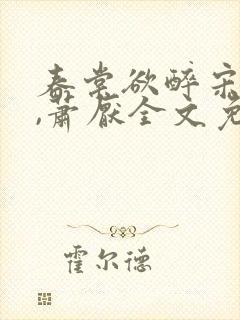 春棠欲醉宋
,萧厌全文免
霍尔德